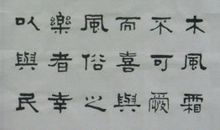 木風霜
不可愛
而喜與
風俗之
樂者幸
以與民